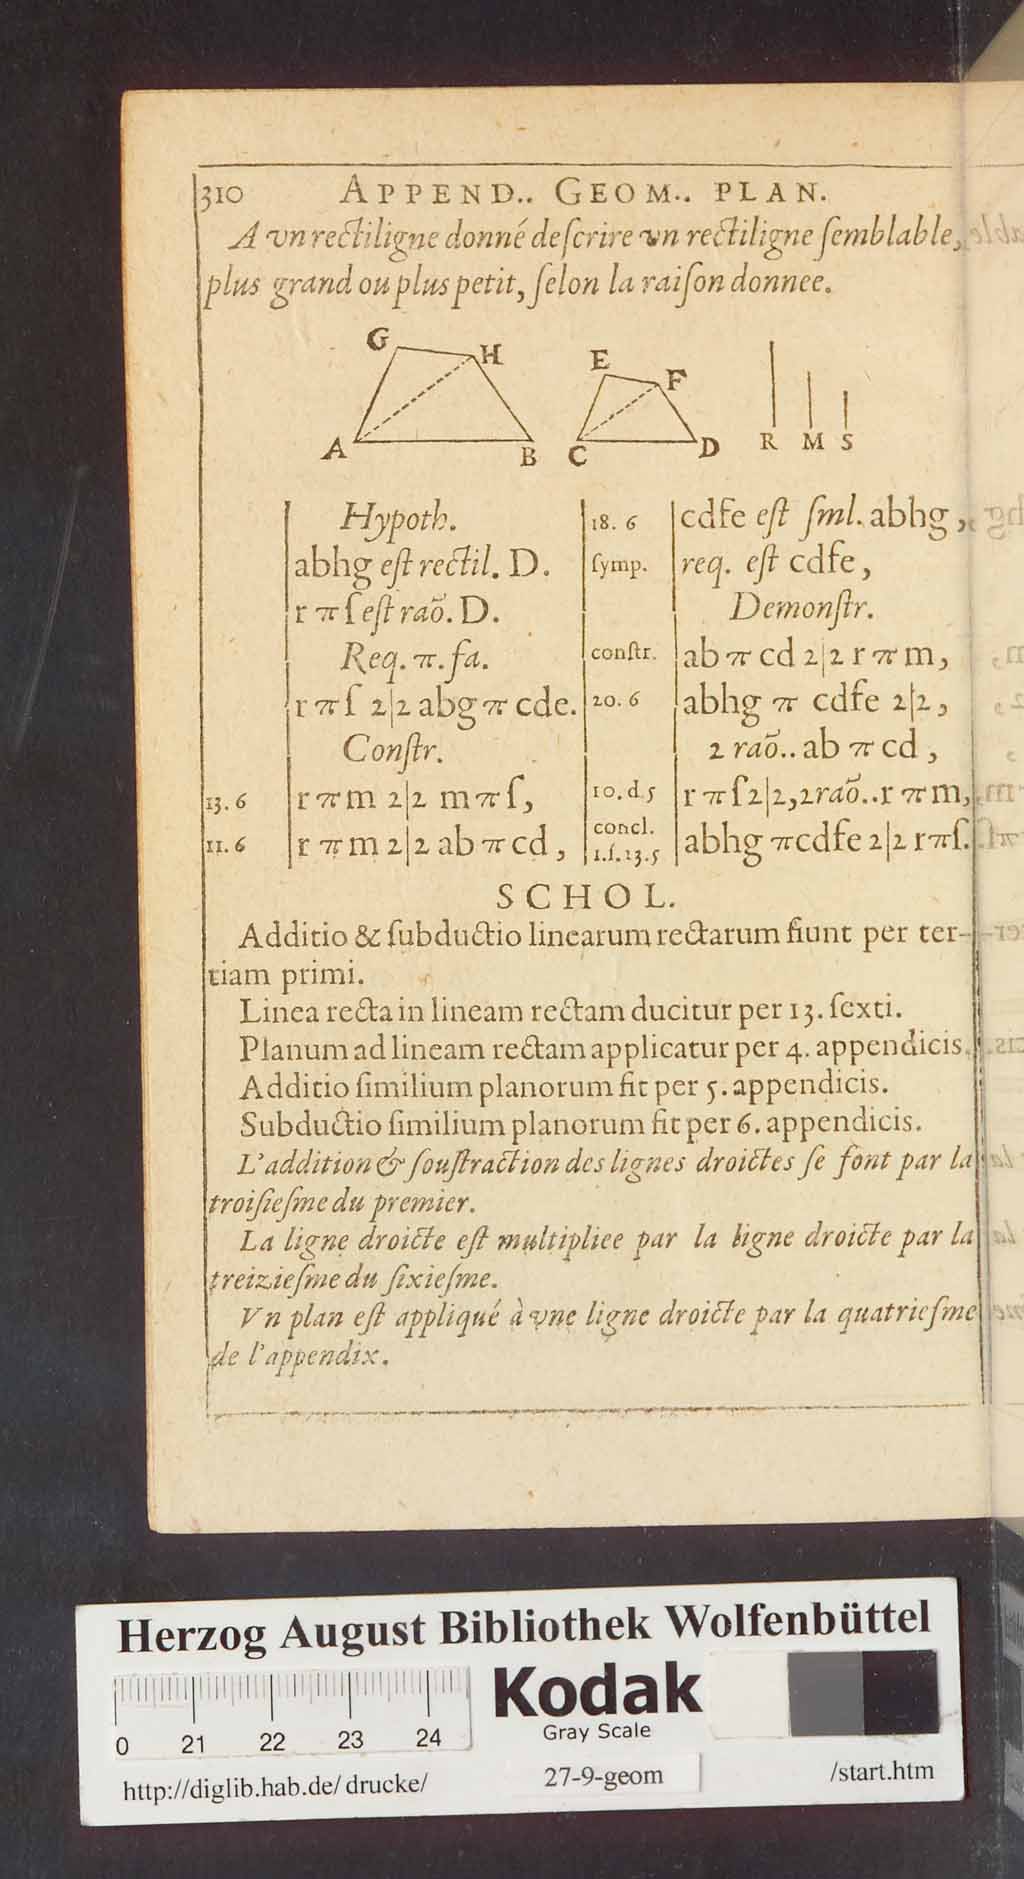 310 APPEND.. GEOM.. PLAN.
A vn rectiligne donné deſcrire vn rectiligne ſemblable,
plus grand ou plus petit, ſelon la raiſon donnee.
G H E F
A B C D R M S
Hypoth.
abhg eſt rectil. D.
r π ſ eſt raõ. D.
Req. π. fa.
r π ſ 2|2 abg π cde.
Conſtr.
13. 6 r π m 2|2 m π ſ,
11. 6 r π m 2|2 ab π cd,
18. 6 cdfe eſt ſml. abhg,
ſymp. req. eſt cdfe,
Demonſtr.
conſtr. ab π cd 2|2 r π m,
20. 6 abhg π cdfe 2|2,
2 raõ.. ab π cd,
10. d 5 r π ſ 2|2, 2 raõ.. r π m,
concl.
1. ſ. 23. 5 abhg π cdfe 2|2 r π ſ.
SCHOL.
Additio & ſubductio linearum rectarum fiunt per ter-
tiam primi.
Linea recta in lineam rectam ducitur per 13. ſexti.
Planum ad lineam rectam applicatur per 4. appendicis.
Additio ſimilium planorum fit per 5. appendicis.
Subductio ſimilium planorum fit per 6. appendicis.
L'addition & ſouſtraction des lignes droictes ſe font par la
troiſieſme du premier.
La ligne droicte eſt multipliee par la ligne droicte par la
treizieſme du ſixieſme.
Vn plan eſt appliqué à vne ligne droicte par la quatrieſme
de l'appendix.
Herzog August Bibliothek Wolfenbüttel
Kodak
Gray Scale
0 21 22 23 24
http://diglib.hab.de/drucke/ 27-9-geom /start.htm